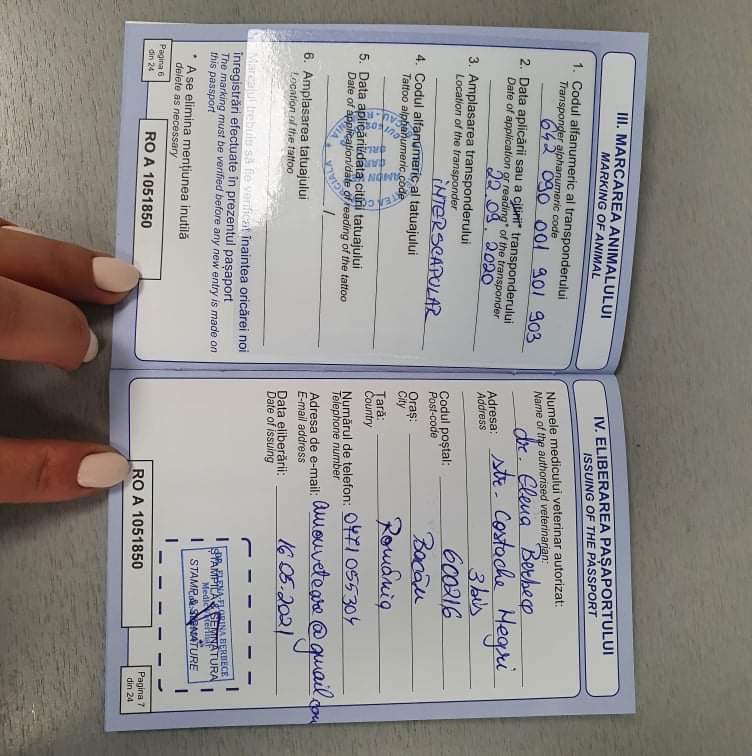 III. MARCAREA ANIMALULUI
MARKING OF ANIMAL
1. Codul alfanumeric al transponderului
Transponder alphanumeric code
642 090 001 901 903
2. Data aplicării sau a citirii* transponderului
Date of application or reading* of the transponder
22.09.2020
3. Amplasarea transponderului
Location of the transponder
INTERSCAPULAR
4. Codul alfanumeric al tatuajului
Tattoo alphanumeric code
5. Data aplicării/data citirii tatuajului
Date of application/date of reading of the tattoo
/
6. Amplasarea tatuajului
Location of the tattoo
Marcajul trebuie să fie verificat înaintea oricărei noi
înregistrări efectuate în prezentul pașaport
The marking must be verified before any new entry is made on
this passport
* A se elimina mențiunea inutilă
delete as necessary
Pagina 6
din 24
RO A 1051850
IV. ELIBERAREA PAȘAPORTULUI
ISSUING OF THE PASSPORT
Numele medicului veterinar autorizat:
Name of the authorised veterinarian:
dr. Elena Berbece
Adresa: str. Costache Negri
Address
3 bis
Codul poștal: 600216
Post-code
Oraș: Bacău
City
Țară: România
Country
Numărul de telefon: 0471055304
Telephone number
Adresa de e-mail: amonvetcare@gmail.com
E-mail address
Data eliberării: 16.05.2021
Date of issuing
DR. ELENA FLORINA BERBECE
ȘTAMPILĂ & SEMNĂTURA
STAMP & SIGNATURE
RO A 1051850
Pagina 7
din 24